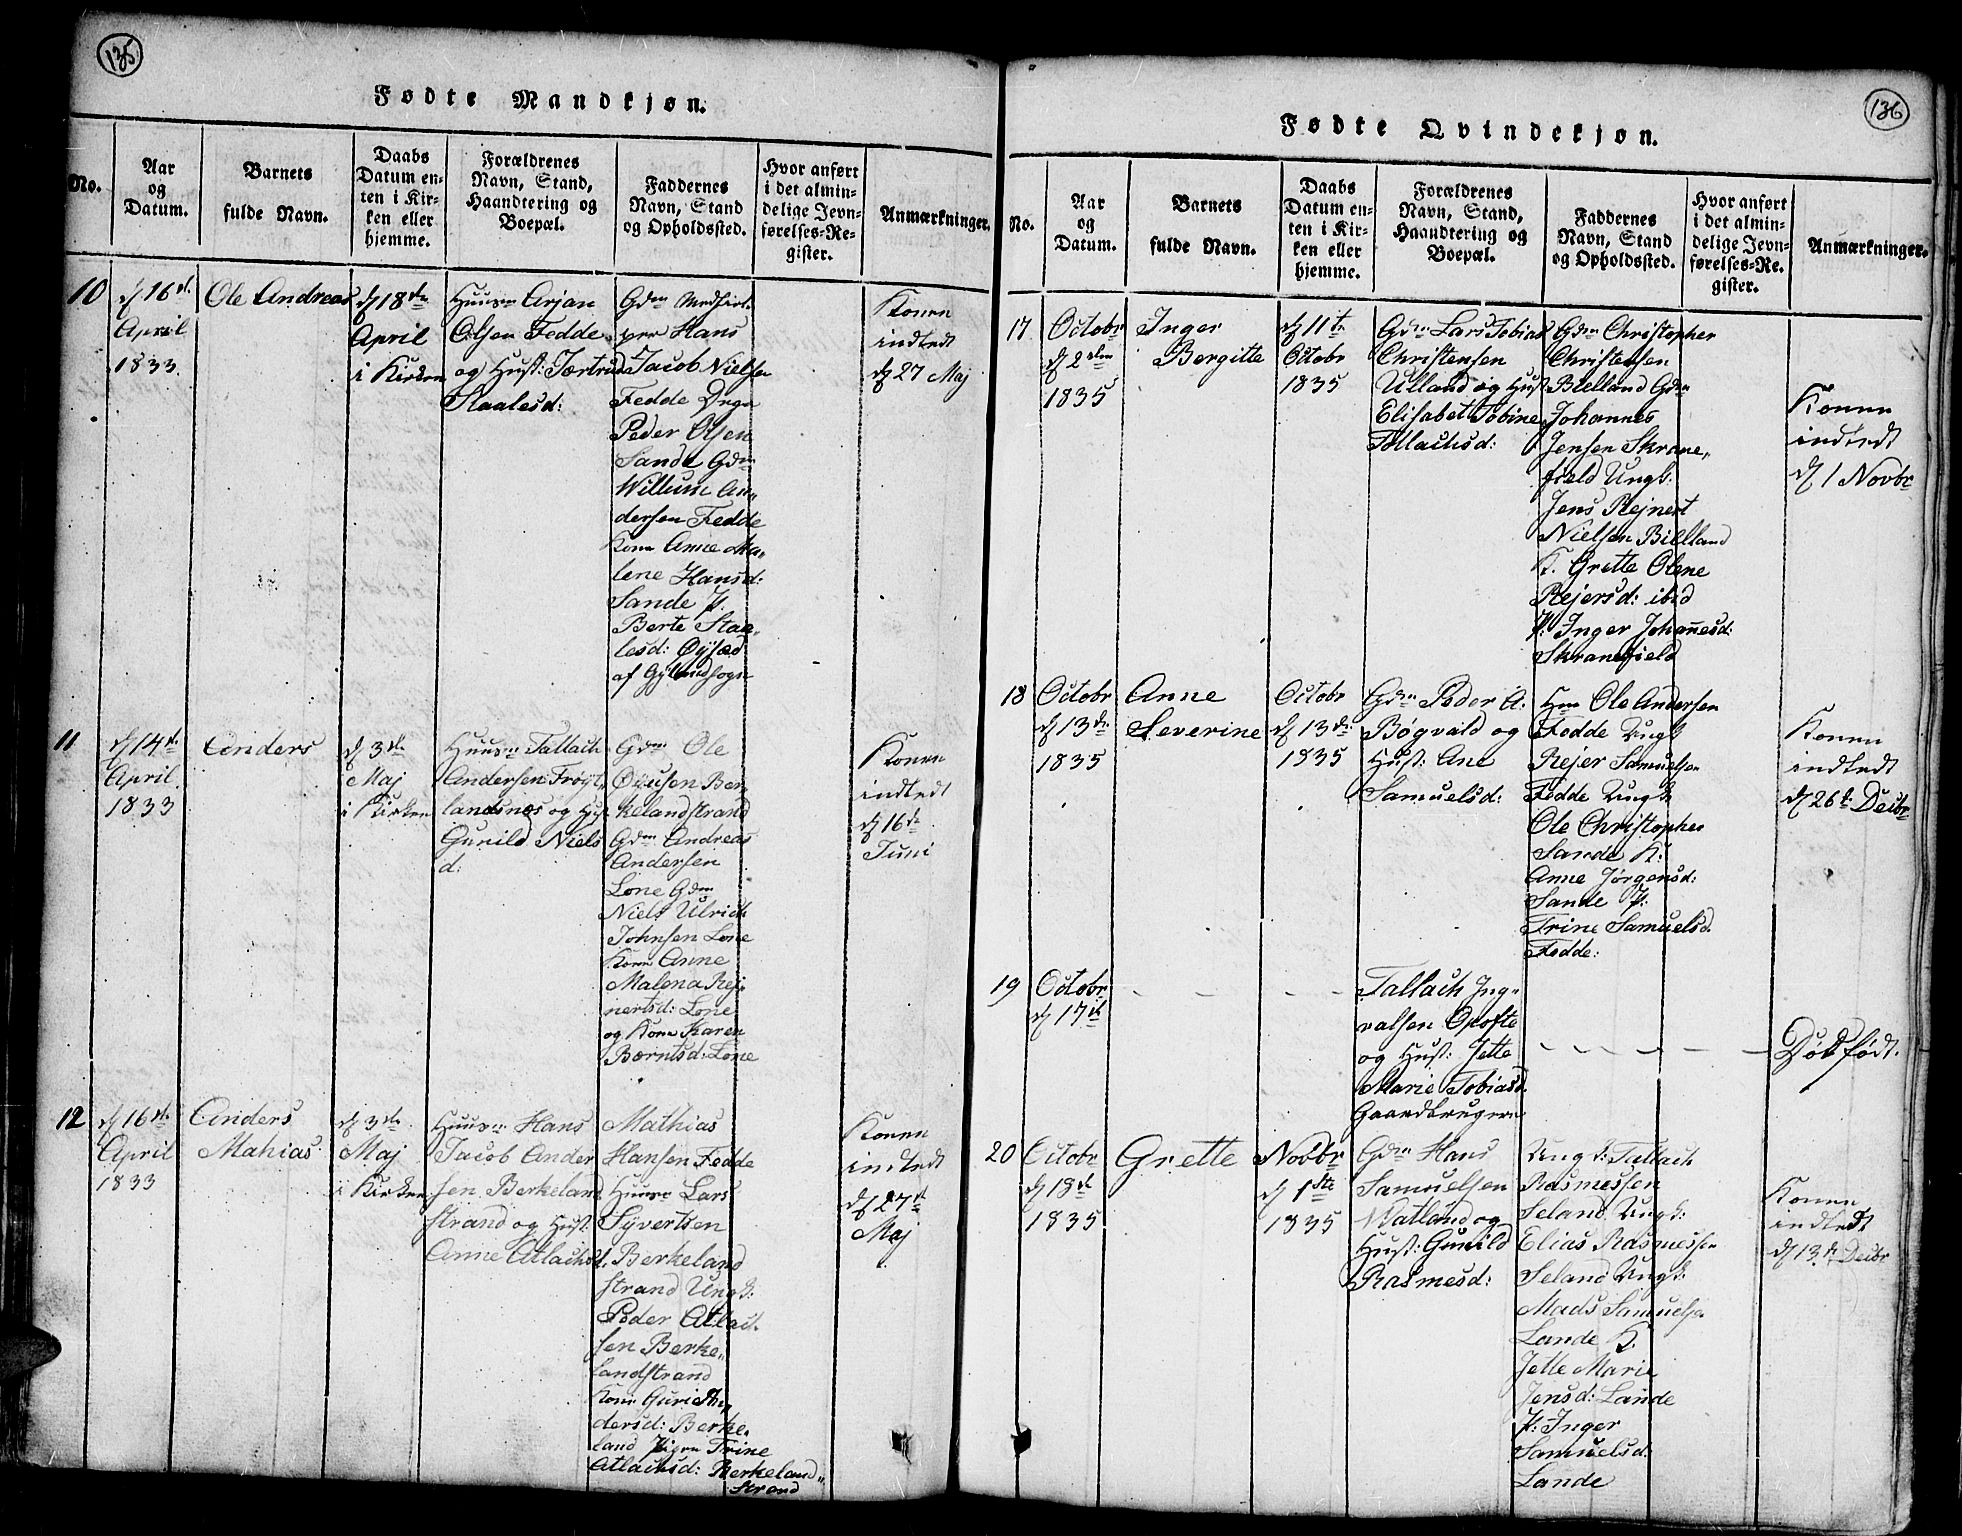 135
Fødte Mandkjøn.
No.
Aar
og
Datum.
Barnets
fulde Navn.
Daabs
Datum en-
ten i Kir-
ken eller
hjemme.
Forældrenes
Navn, Stand,
Haandtering og
Boepæl.
Faddernes
Navn, Stand
og Opholdssted.
Hvor anført
i det almin-
delige Jevn-
førelses-Re-
gister.
Anmærkninger.
10
d 16de
April
1833
Ole Andreas
d 18de
April
i Kirken
Huusm Arjan
Olsen Fedde
og Hust: Tærtrud
Staalesd:
Gdm Medhiel-
per Hans
Jacob Nielsen
Fedde
Peder Olsen
Sande Gdm
Willum An-
dersen Fedde
Kone Anne Ma-
lene Hansd:
Sande P.
Berte Staa-
lesd: Øysæd
af Gyllandsogn
Konen
indledt
d 27 Maj
11
d 14de
April
1833
Anders
d 3de
Maj
i Kirken
Huusm Tallach
Andersen Frøyt-
landsnæs og Hust
Gunild Niels
d:
Gdm Ole
Øyusen Ber-
kelandstrand
Gdm Andreas
Andersen
Lone Gdm
Niels Ulrich
Johnsen Lone
Kone Anne
Malena Rej-
nertsd: Lone
og Kone Karen
Bærntsd: Lone
Konen
indledt
d 16de
Juni
12
d 16de
April
1833
Anders
Mahias
d 3de
Maj
i Kirken
Huusm Hans
Jacob Ander
sen Berkeland
strand og Hust
Anne Atlachsd.
Mathias
Hansen Fedde
Huusm Lars
Syvertsen
Berkeland
strand Ungk:
Peder Atlach
sen Berke-
landstrand
Kone Guri An-
dersd: Berke-
land Pigen Trine
Atlachsd: Berkeland-
strand
Konen
indledt
d 27de
Maj
136
Fødte Qvindekjøn.
No.
Aar
og
Datum.
Barnets
fulde Navn.
Daabs
Datum en-
ten i Kir-
ken eller
hjemme.
Forældrenes
Navn, Stand,
Haandtering og
Boepæl.
Faddernes
Navn, Stand
og Opholdssted.
Hvor anført
i det almin-
delige Jevn-
førelses-Re-
gister.
Anmærkninger.
17
Octobr
d 2den
1835
Inger
Bergitte
d 11te
Octobr
1835
Gdm Lars Tobias
Christensen
Ulland og Hust
Elisabet Tobine
Tollachsd:
Gdm Christopher
Christensen
Bielland Gdm
Johannes
Jensen Skrane-
field Ungk:
Jens Rejnert
Nielsen Bielland
K. Grette Olene
Rejersd: ibid
P: Inger Johannesd:
Skranefield
Konen
indledt
d 1 Novbr
18
Octobr
d 13de
1835
Anne
Severine
Octobr
d 13de
1835
Gdm Peder A:
Bøgvald og
Hust: Ane
Samuelsd:
Hm Ole Andersen
Fedde Ungk
Rejer Samuelsen
Fedde Ungk:
Ole Christopher
Sande K:
Anne Jørgensd:
Sande P:
Trine Samuelsd
Fedde:
Konen
indledt
d 26de Decbr
19
Octobr
d 17de
Tallach Ing-
valsen Opofte
og Hust: Jette
Marie Tobiasd.
Gaardbrugere
Dødfødt.
20
Octobr
d 18de
1835
Grette
Novbr
d 1ste
1835
Gdm Hans
Samuelsen
Natland og
Hust: Gunild
Rasmesd:
Ungk: Tallach
Rasmessen
Seland Ungk:
Elias Rasmessen
Seland Ungk:
Mads Samuelsen
Lande K.
Jette Marie
Jensd: Lande
P: Inger
Samuelsd:
Lande
Konen
indledt
d 13de Decbr